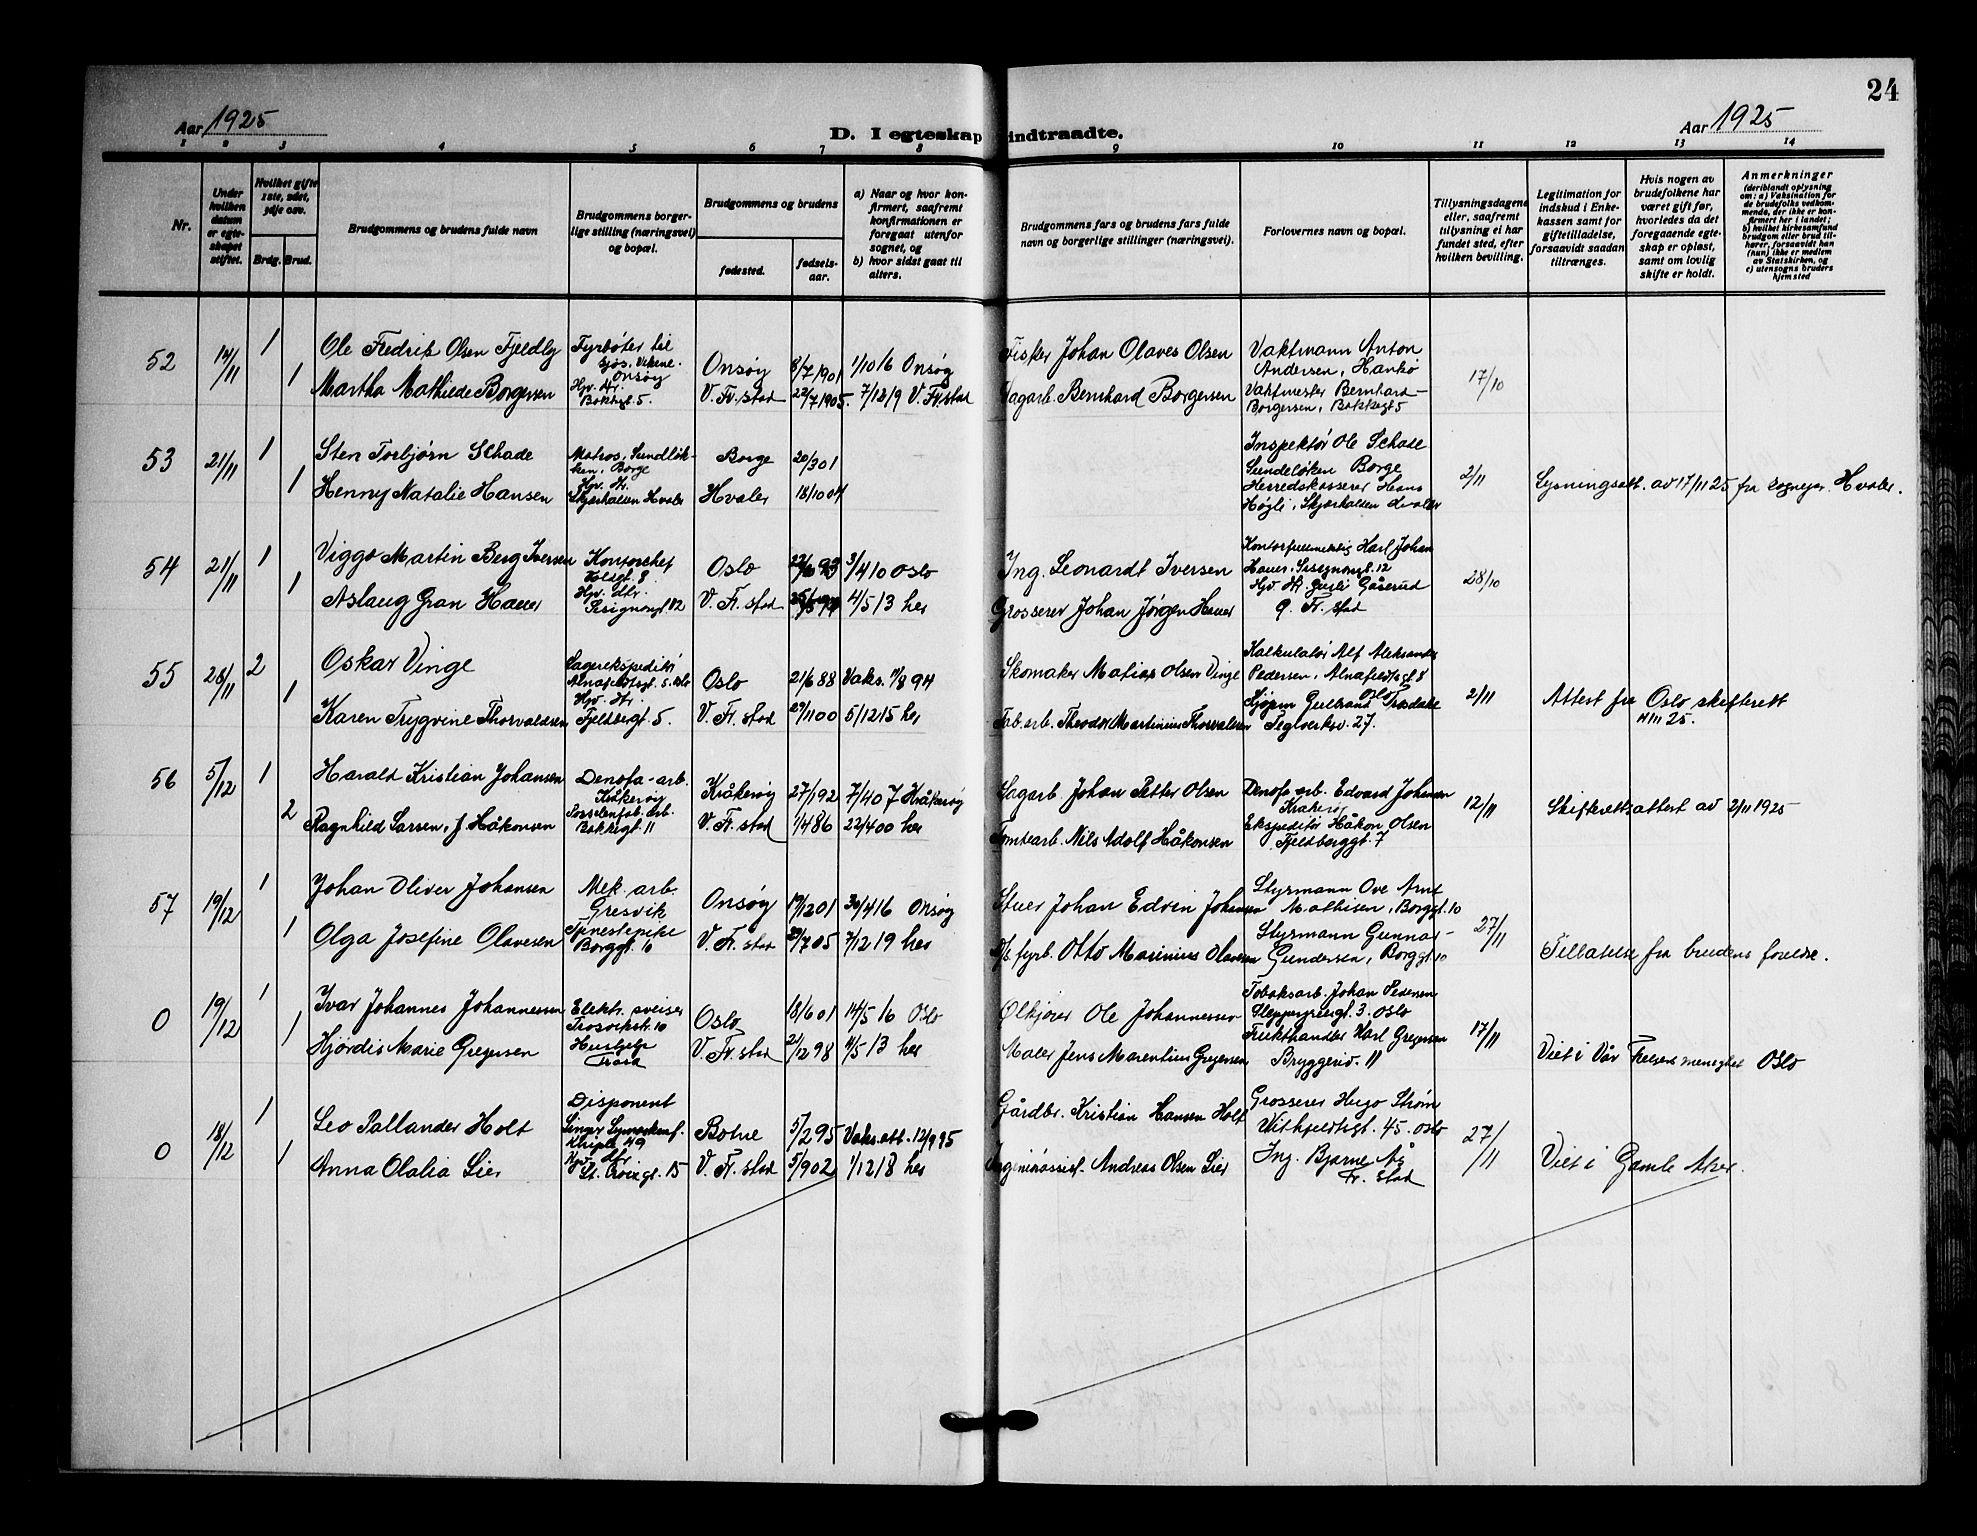 24
Aar 1925
D. I egteskap indtraadte.
Aar 1925
1 2 3 4 5 6 7 8 9 10 11 12 13 14
Nr.
Under hvilken datum er egteskapet stiftet.
Hvilket gifte 1ste, 2det, 3dje osv.
Brdg. Brud.
Brudgommens og brudens fulde navn
Brudgommens borgerlige stilling (næringsvei) og bopæl.
Brudgommens og brudens
fødested.
fødselsaar.
a) Naar og hvor konfirmert, saafremt konfirmationen er foregaat utenfor sognet, og
b) hvor sidst gaat til alters.
Brudgommens fars og brudens fars fulde navn og borgerlige stillinger (næringsvei).
Forlovernes navn og bopæl.
Tillysningsdagene eller, saafremt tillysning ei har fundet sted, efter hvilken bevilling.
Legitimation for indskud i Enkekassen samt for giftetilladelse, forsaavidt saadan tiltrænges.
Hvis nogen av brudefolkene har været gift før, hvorledes da det foregaaende egteskap er opløst, samt om lovlig skifte er holdt.
Anmerkninger
(deriblandt oplysning om: a) Vaksination for de brudefolks vedkommende, der ikke er konfirmert her i landet; b) hvilket kirkesamfund brudgom eller brud tilhører, forsaavidt han (hun) ikke er medlem av Statskirken, og c) utensogns bruders hjemsted
52 14/11 1 Ole Fredrik Olsen Fjeldly Fyrbøter til sjøs, Vikene Onsøy Onsøy 8/7 1901 1/10 16 Onsøy Fisker Johan Olaves Olsen Vaktmann Anton Andersen, Hankø 17/10
1 Martha Mathilde Borgersen Hjv. dtr. Bakkegt. 5. V. Fr.stad 22/7 1905. 7/12 19 V. Fr.stad Sagarb. Bernhard Borgersen Vaktmester Bernhard Borgersen, Bakkegt 5
53 21/11 1 Sten Torbjørn Schade Matros, Sundløkken, Borge Borge 20/3 01 Inspektør Ole Schade Sundeløken Borge 2/11 Lysningsatt. av 17/11 25 fra sognepr. Hvaler.
1 Henny Natalie Hansen Hjv. dtr. Skjærhalden Hvaler Hvaler 18/10 04 Herredskasserer Hans Høgli, Skjærhalden Hvaler
54 21/11 1 Viggo Martin Berg Iversen Kontorchef Holdgt. 8 Oslo 3/4 10 Oslo Ing. Leonardt Iversen Kontorfullmektig Karl Johan Hauer, 28/10
1 Aslaug Gran Hauer Hjv. dtr. V. Fr. stad 4/5 13 her Grosserer Johan Jørgen Hauer Hjv. dtr. Gårerud G. Fr. stad
55 28/11 2 Oskar Vinge Lagerekspeditør Alnafetgt. 8. Oslo Oslo 21/6 88 Vaks. 11/8 94 Skomaker Matias Olsen Vinge Kalkulatør Alf Aleksander Pedersen, Alnafetgt 8 Oslo 2/11 Attest fra Oslo skifterett 4/11 25.
1 Karen Trygvine Thorvaldsen Hjv. dtr. Fjeldbergt 5. V. Fr. stad 29/11 00 5/12 15 her Fab. arb. Theodor Martinius Thorvaldsen Teglverksv. 27.
56 5/12 1 Harald Kristian Johansen Denofa-arb. Kråkerøy Kråkerøy 27/1 92 7/4 07 Kråkerøy Sagarb Johan Petter Olsen Denofa arb. Edvard Johansen Krakerøy 12/11 Skifterettsattest av 2/11 1925
2 Ragnhild Larsen, f. Håkonsen Bakkegt 11 V. Fr. stad 1/4 86 22/4 00 her Tomtearb. Nils Adolf Håkonsen Ekspeditør Håkon Olsen Fjeldberggt. 7
57 19/12 1 Johan Oliver Johansen Mek. arb. Gresvik Onsøy 19/12 01 30/4 16 Onsøy Stuer Johan Edvin Johansen Styrmann Ove Arnt Mathisen, Borggt. 10 27/11
1 Olga Josefine Olavesen Tjenestepike Borggt. 10 V. Fr. stad 29/7 05 7/12 19 her fyrb. Otto Marinius Olavesen Styrmann Gunnar Gundersen, Borggt 10 Tillatelse fra brudens foreldre.
0 19/12 1 Ivar Johannes Johannessen Elektr. sveiser Trosvikstr. 10 Oslo 18/6 01 14/5 16 Oslo Ølkjører Ole Johannessen Tobaksarb. Johan Pedersen 3. Oslo 17/11
1 Hjørdis Marie Gregersen Hushjelp Trara V. Fr. stad 2/12 98 4/5 13 her Maler Jens Marentius Gregersen Frukthandler Karl Gregersen Bryggeriv. 11 Viet i Vår Frelsers menighet Oslo
0 18/12 1 Leo Pallander Holt Disponent Singer Symaskinf. 49 Botne 5/2 95 Vaks. att. 12/9 95 Gårdbr. Kristian Hansen Holt Grosserer Hugo Strøm Vithfeldtsgt. 45. Oslo 27/11
1 Anna Olalia Lier Hjv. dtr. 15 V. Fr. stad 5/9 02 1/12 18 her Andreas Olsen Lier Ing. Bjarne Aå Fr. stad Viet i Gamle Aker.